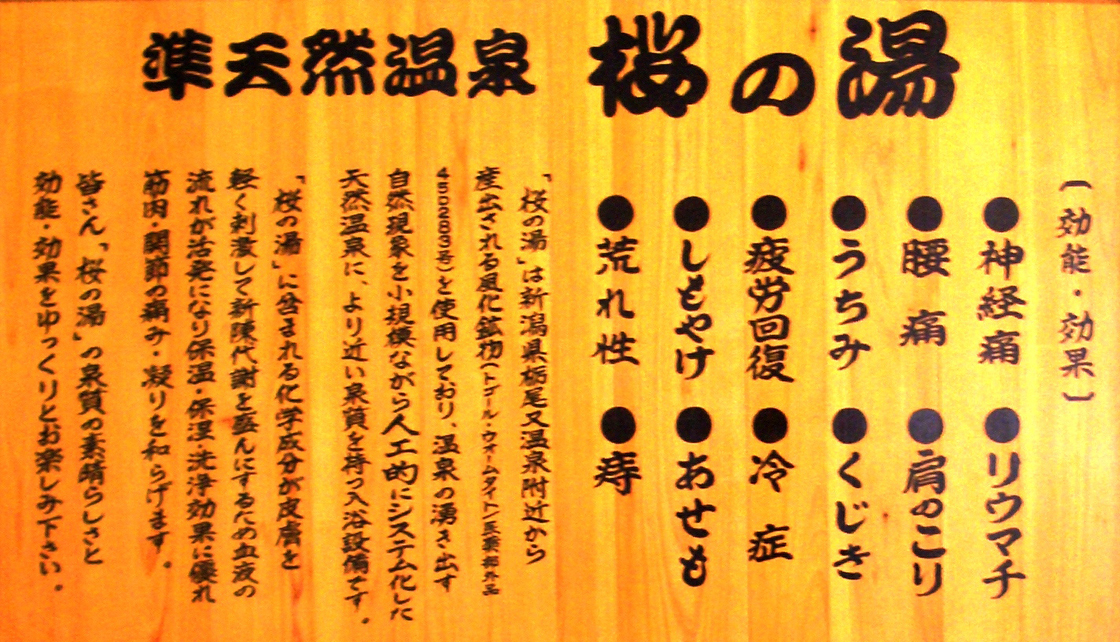 準天然温泉 桜の湯
〔効能・効果〕
●神経痛 ●リウマチ
●腰痛 ●肩のこり
●うちみ ●くじき
●疲労回復 ●冷症
●しもやけ ●あせも
●荒れ性 ●痔
「桜の湯」は新潟県栃尾又温泉附近から
産出される風化鉱物(トゴール・ウォームタイト/医薬部外品
450283号)を使用しており、温泉の湧き出す
自然現象を小規模ながら人工的にシステム化した
天然温泉に、より近い泉質を持つ入浴設備です。
「桜の湯」に含まれる化学成分が皮膚を
軽く刺激して新陳代謝を盛んにするため血液の
流れが活発になり保温・保湿・洗浄効果に優れ
筋肉・関節の痛み・凝りを和らげます。
皆さん、「桜の湯」の泉質の素晴らしさと
効能・効果をゆっくりとお楽しみ下さい。